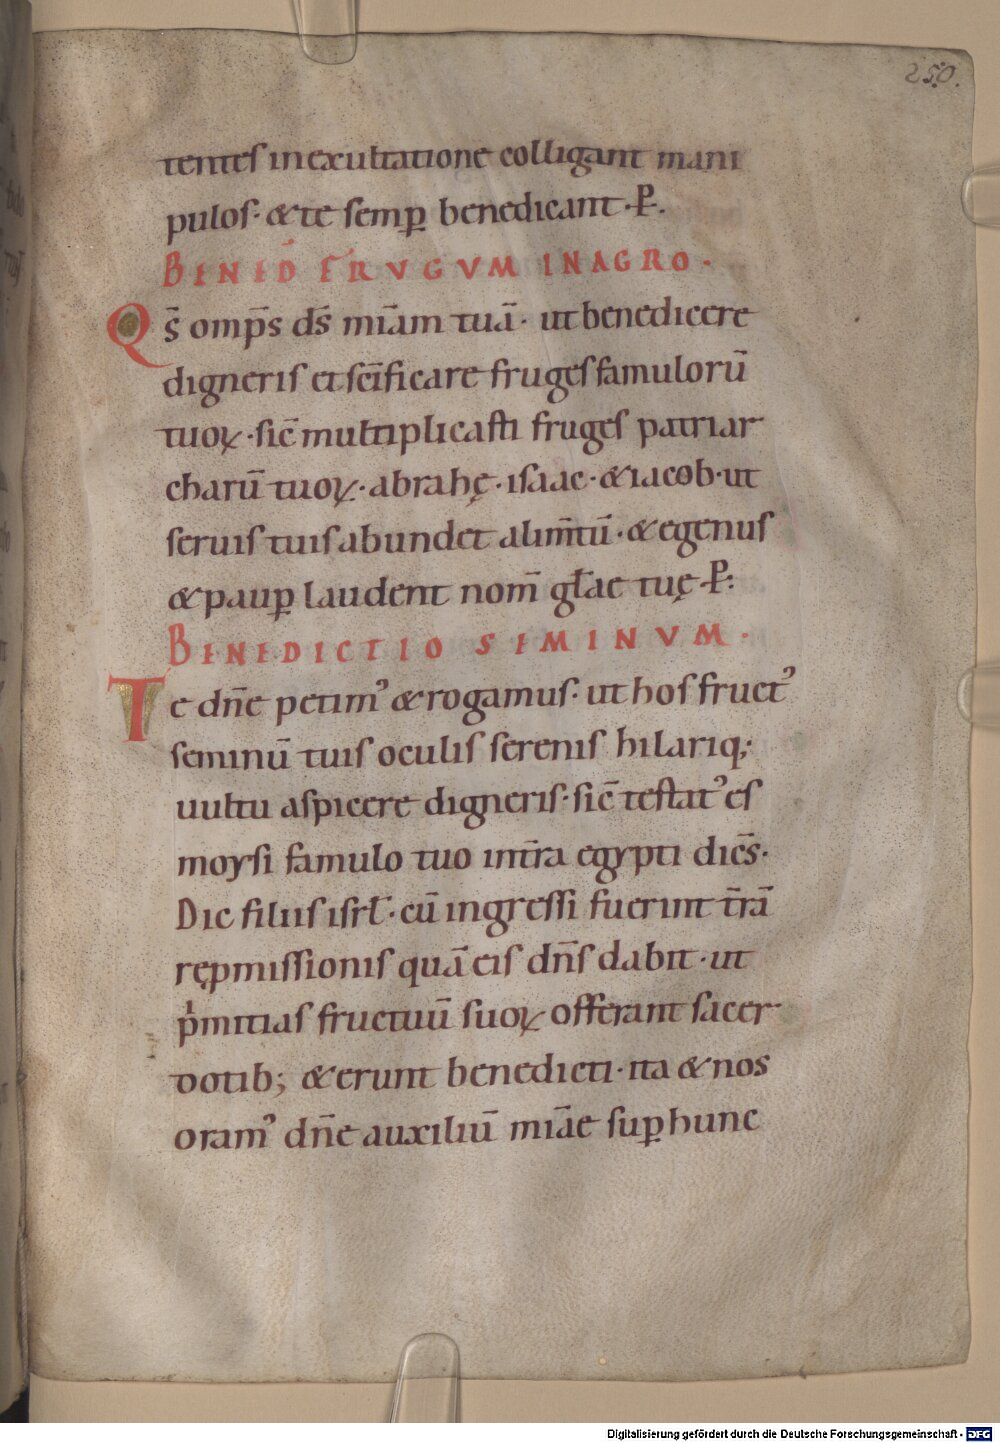 250.
tentes in exultatione colligant mani
pulos· &te semꝑ benedicant·P̱.
BENED FRVGVM INAGRO·
Qs̄ omp̄s ds̄ mīam tuā· ut benedicere
digneris et scīficare fruges famulorū
tuoꝝ·sic̄ multiplicasti fruges patriar
charū tuoꝝ·abrahę·isaac·&iacob·ut
seruis tuis abundet alim̄tū·&egenus
&pauꝑ laudent nom̄ gl̄ae tuę·P̱:
BENEDICTIO SEMINVM·
Te dn̄e petimꝰ &rogamus· ut hos fructꝰ
seminū tuis oculis serenis hilariq;·
uultu aspicere digneris·sic̄ testatꝰ es
moysi famulo tuo int̄ra egypti dicēs·
Dic filiis isrl̄·cū ingressi fuerint t̄rā
rępmissionis quā eis dn̄s dabit·ut
p̍mitias fructuū suoꝝ offerant sacer·
dotib; &erunt benedicti·ita &nos
oramꝰ dn̄e auxiliū mīae suꝑ hunc
Digitalisierung gefördert durch die Deutsche Forschungsgemeinschaft - DFG